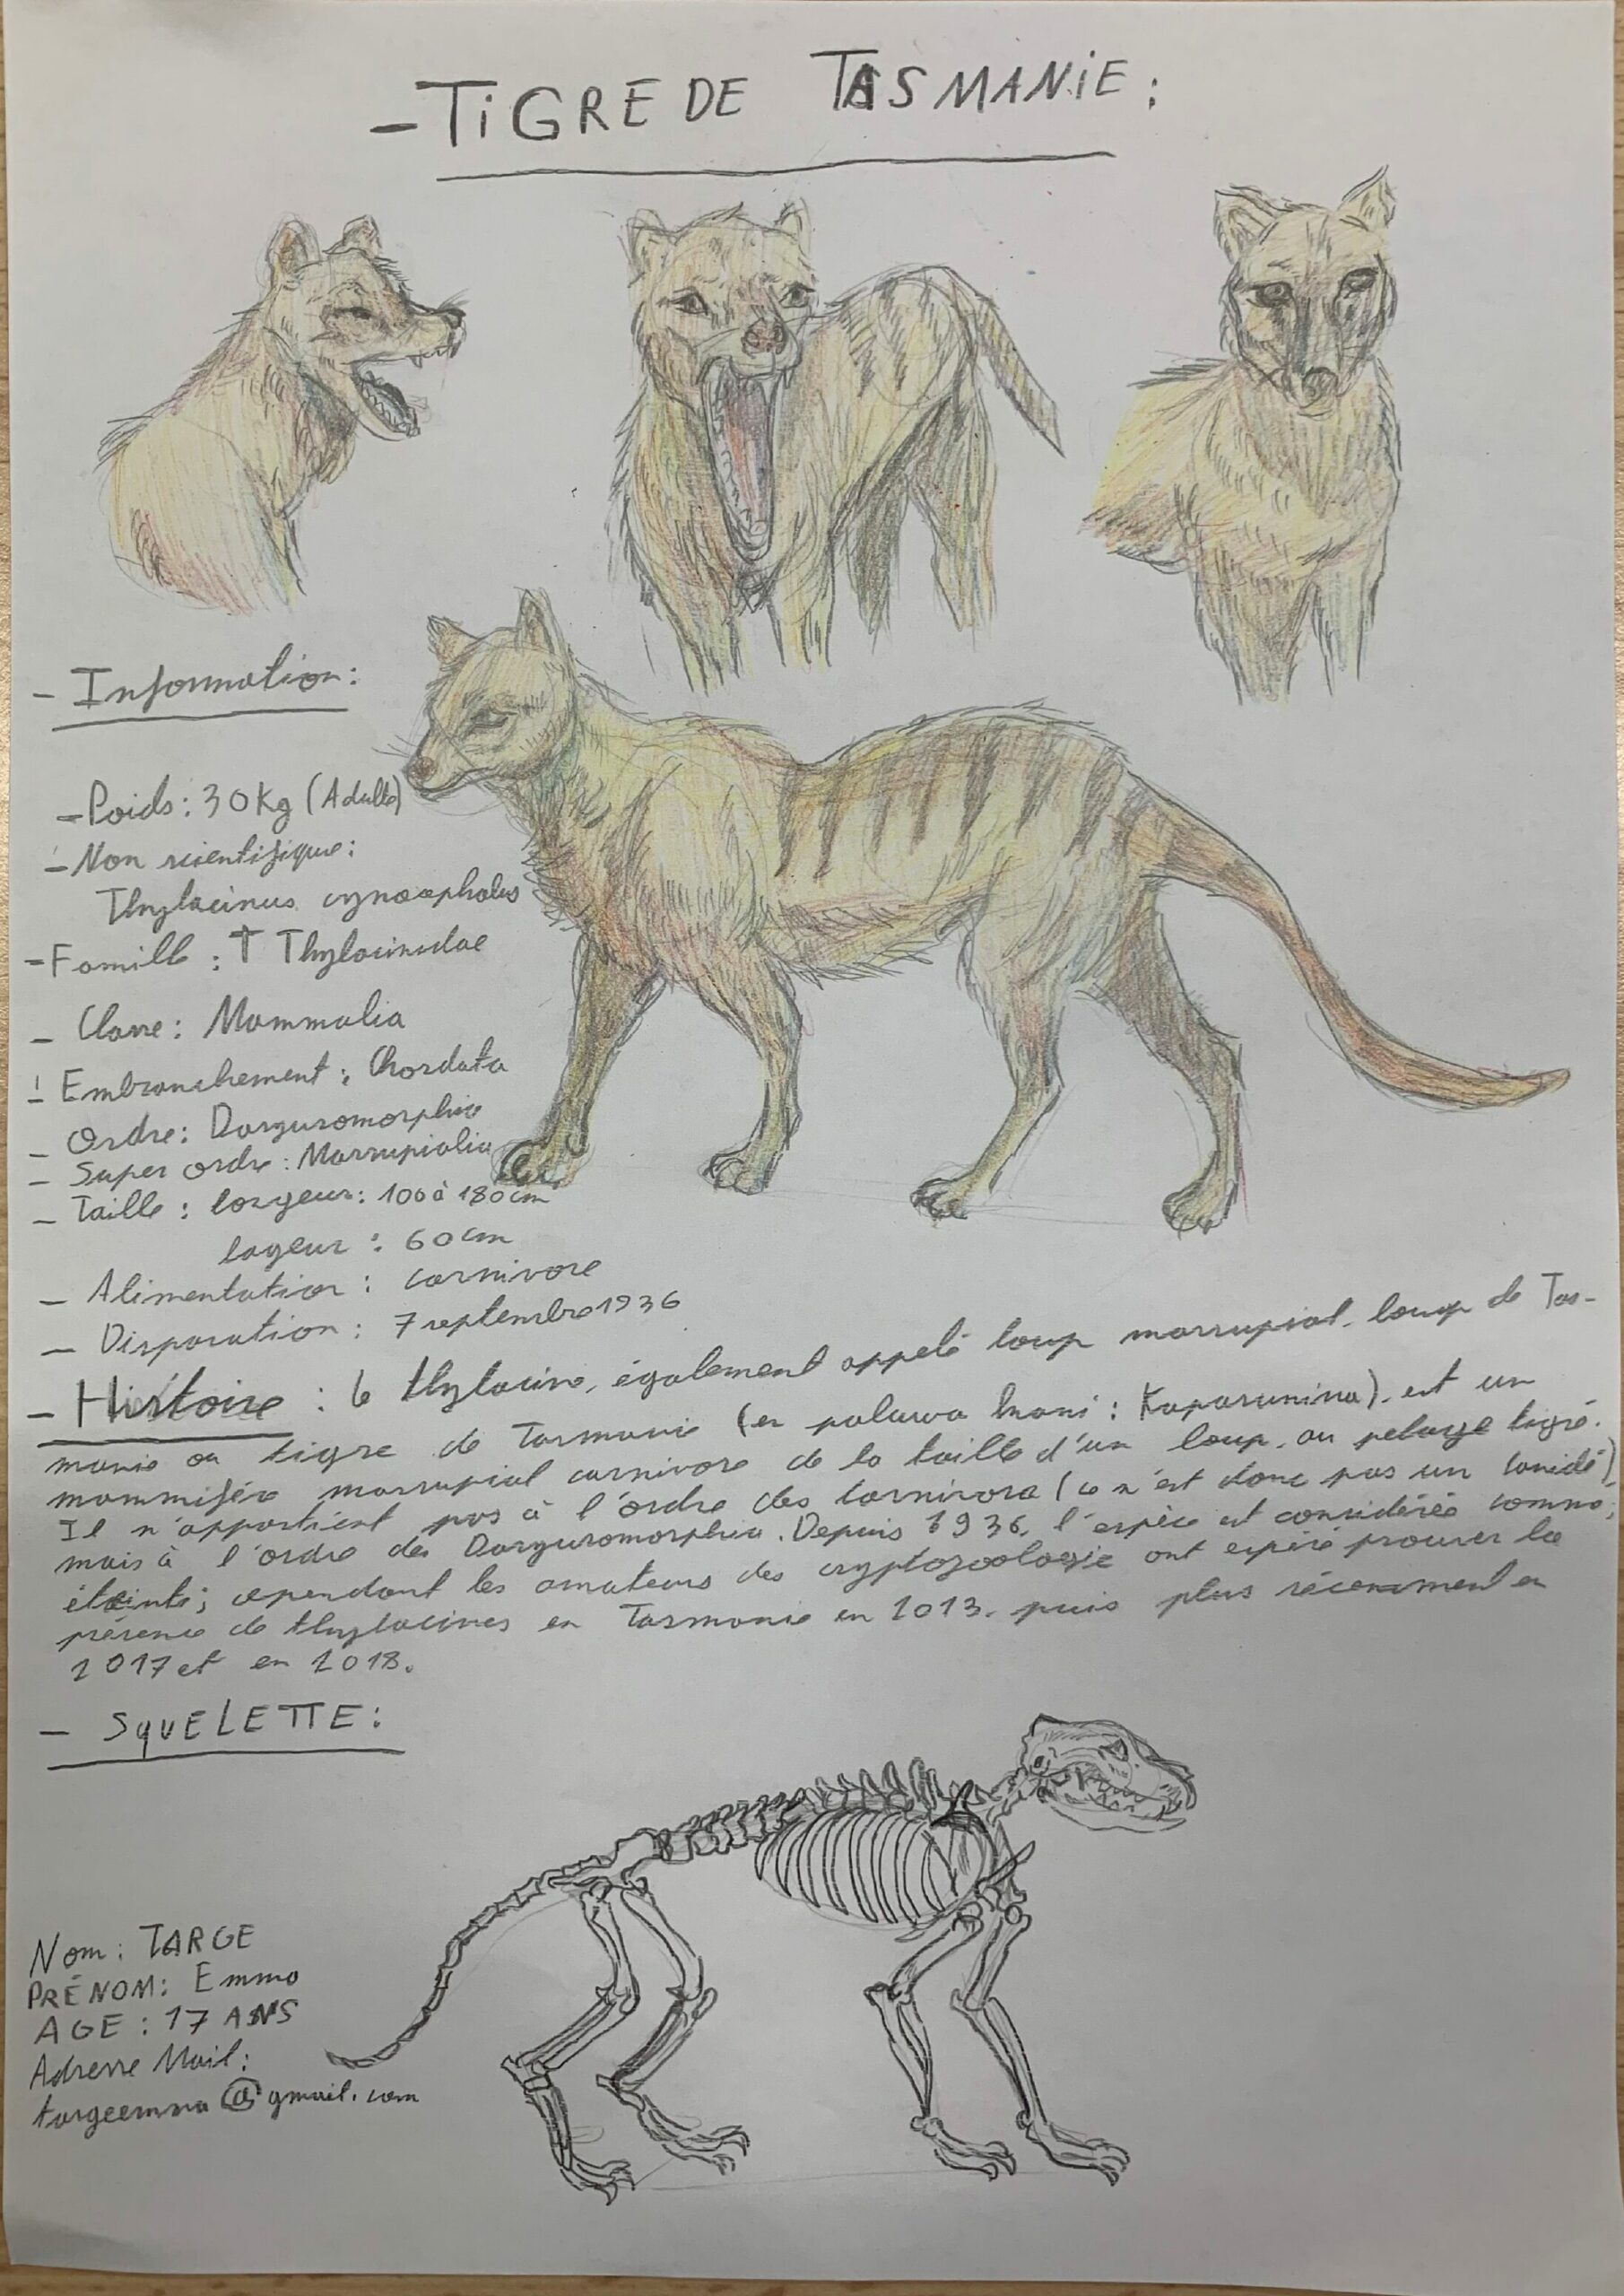 - TiGRE DE TASMANiE :
- Information :
- Poids : 30 Kg (Adulte)
- Non scientifique :
Thylacinus cynocephalus
- Famille : † Thylacinidae
- Classe : Mammalia
- Embranchement : Chordata
- Ordre : Dasyuromorphia
- Super ordre : Marsupialia
- Taille : longeur : 100 à 180 cm
lageur : 60 cm
- Alimentation : carnivore
- Disparation : 7 septembre 1936
- Histoire : le thylacine, également appelé loup marsupial, loup de Tas-
manie ou tigre de Tasmanie (en palawa kani : Kaparunina), est un
mammifère marsupial carnivore de la taille d'un loup, au pelage tigré.
Il n'appartient pas à l'ordre des Carnivora (ce n'est donc pas un canidé)
mais à l'ordre des Dasyuromorphia. Depuis 1936, l'espèce est considérée comme
éteinte; cependant les amateurs des cryptozoologie ont espéré prouver la
présence de thylacines en Tasmanie en 2013, puis plus récemment en
2017 et en 2018.
- SqUELETTE :
Nom : TARGE
PRÉNOM : Emma
AGE : 17 ANS
Adresse Mail :
targeemma@gmail.com